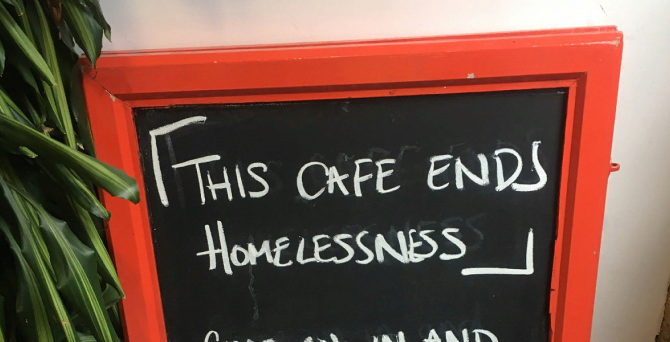 「THIS CAFE ENDS
HOMELESSNESS」
IN AND